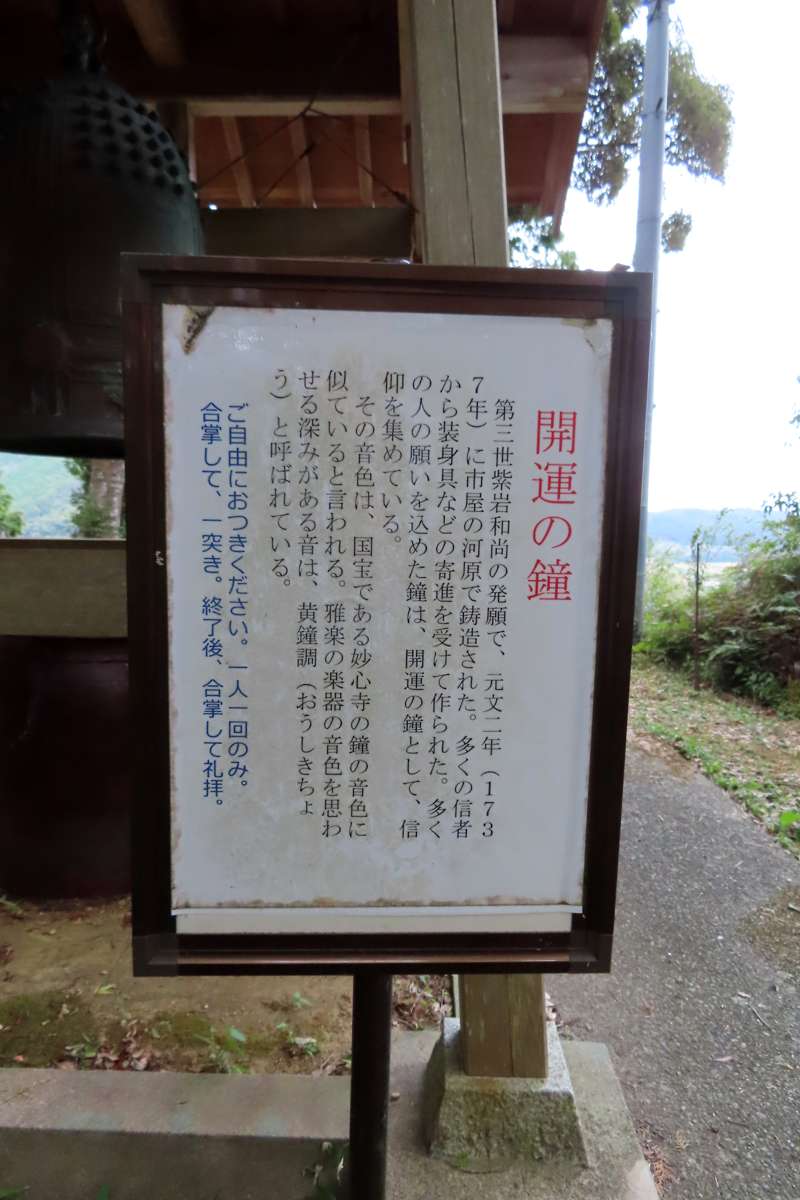 開運の鐘
第三世紫岩和尚の発願で、元文二年（173
7年）に市屋の河原で鋳造された。多くの信者
から装身具などの寄進を受けて作られた。多く
の人の願いを込めた鐘は、開運の鐘として、信
仰を集めている。
その音色は、国宝である妙心寺の鐘の音色に
似ていると言われる。雅楽の楽器の音色を思わ
せる深みがある音は、黄鐘調（おうしきちょ
う）と呼ばれている。
ご自由におつきください。一人一回のみ。
合掌して、一突き。終了後、合掌して礼拝。